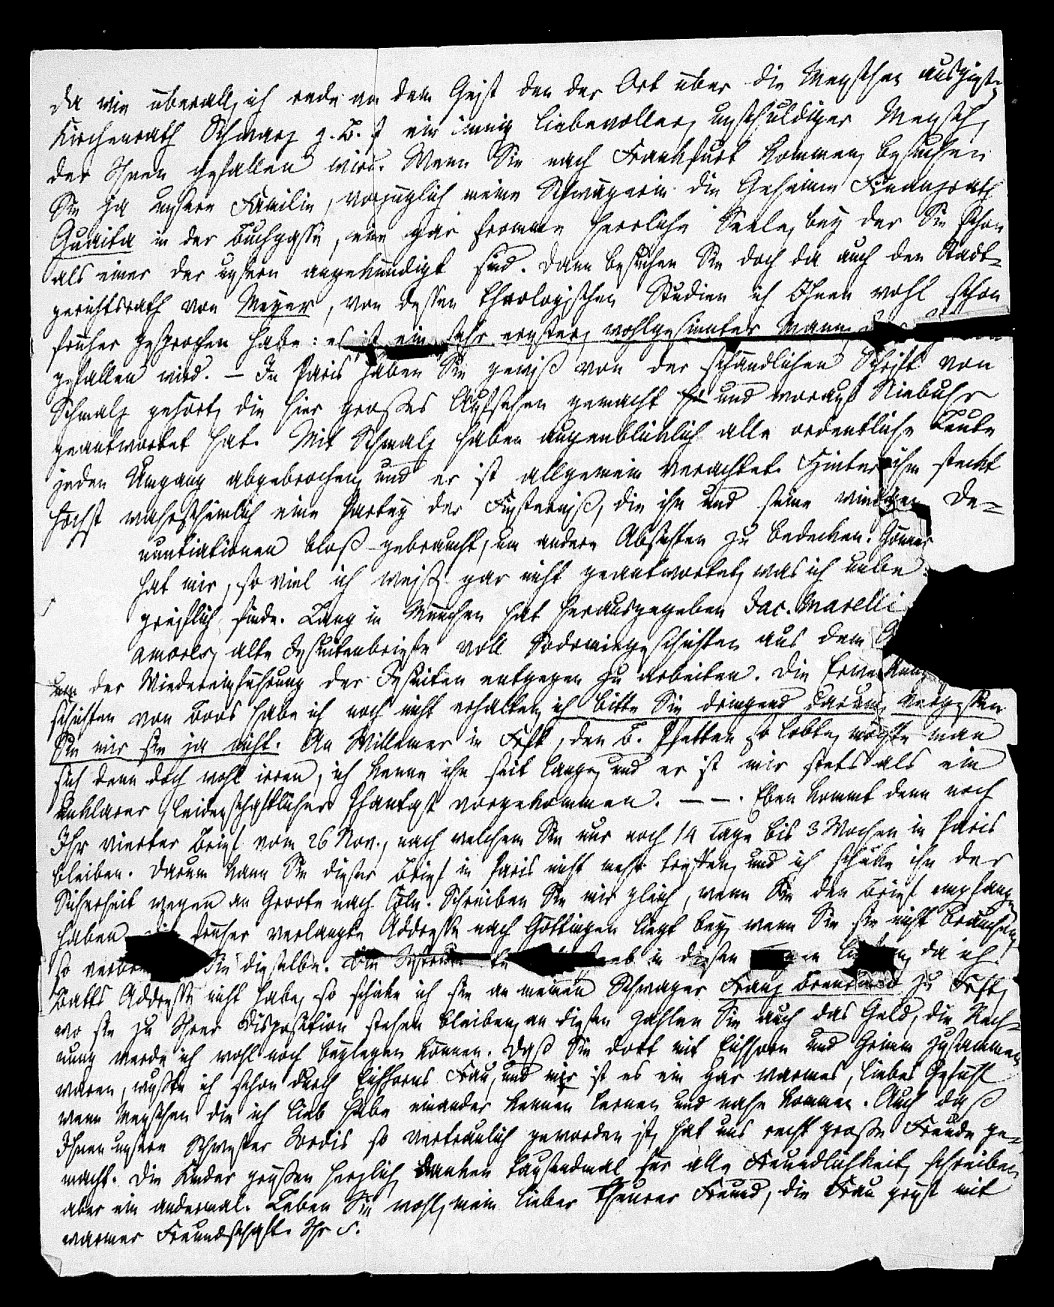 da wie überall, ich rede von dem Geist den der Ort über die Menschen ausgießt.
Kirchenrath Schwarz z. B. ist ein innig liebevoller, unschuldiger Mensch,
der Ihnen gefallen wird. Wenn Sie nach Frankfurt kommen, besuchen
Sie ja unsere Familie, vorzüglich meine Schwägerin die Geheime Finanzräth
Guaita in der Buchgasse, eine gar fromme herrliche Seele, bey der Sie schon
als einer der unsern angekündigt sind. Dann besuchen Sie doch da auch den Stadt-
gerichtsrath von Meyer, von dessen theologischen Studien ich Ihnen wohl schon
früher gesprochen habe: es ist ein sehr ernster, wohlgesinnter Mann, der
gefallen wird. — In Paris haben Sie gewiß von der schändlichen Schrift von
Schmalz gehört, die hier großes Aufsehen gemacht hat und worauf Niebuhr
geantwortet hat. Mit Schmalz haben augenblicklich alle ordentliche Leute
jeden Umgang abgebrochen, und er ist allgemein verachtet. Hinter ihm steckt
höchst wahrscheinlich eine Parthey der Finsterniß, die ihn und seine niedrigen De-
nuntiationen bloß gebraucht, um andere Absichten zu bedecken. Görres
hat mir, so viel ich weiß gar nicht geantwortet, was ich unbe-
greiflich finde. Lang in München hat herausgegeben Jac. Marelli
amores, alte Jesuitenbriefe voll Sodomiegeschichten aus dem
um der Wiedereinführung der Jesuiten entgegen zu arbeiten. Die
schriften von Boos habe ich noch nicht erhalten, ich bitte Sie dringend darum, vergessen
Sie mir sie ja nicht. An Willemer in Frkft, den B. Pfetten so lobte, möchte man
sich denn doch wohl irren, ich kenne ihn seit lange, und er ist mir stets als ein
unklarer leidenschaftlicher Phantast vorgekommen. — —. Eben kommt denn noch
Ihr vierter Brief vom 26 Nov., nach welchem Sie nur noch 14 Tage bis 3 Wochen in Paris
bleiben. Darum kann Sie dieser Brief in Paris nicht mehr treffen, und ich schicke ihn der
Sicherheit wegen an Groote nach Cöln. Schreiben Sie mir gleich, wenn Sie den Brief empfangen
haben früher verlangte Addresse nach Göttingen liegt bey, wenn Sie sie nicht brauchen,
so Sie dieselbe. Die in diesen da ich
Addresse nicht habe, so schicke ich sie an meinen Schwager Franz Brentano zu Frkft,
wo sie zu Ihrer Disposition stehen bleiben, an diesen zahlen Sie auch das Geld, die Rech-
nung werde ich wohl noch beylegen können. Daß Sie dort mit Eichhorn und Grimm zusammen
waren, wußte ich schon durch Eichhorns Frau, und mir ist es ein gar warmes, liebes Gefühl,
wenn Menschen die ich lieb habe einander kennen lernen und nahe kommen. Auch daß
Ihnen unsere Schwester Jordis so vertraulich geworden ist, hat uns recht große Freude ge-
macht. Die Kinder grüßen herzlich, danken tausendmal für alle Freundlichkeit, schreiben
aber ein andermal. Leben Sie wohl, mein lieber theurer Freund, die Frau grüst mit
warmer Freundschaft. Ihr S.